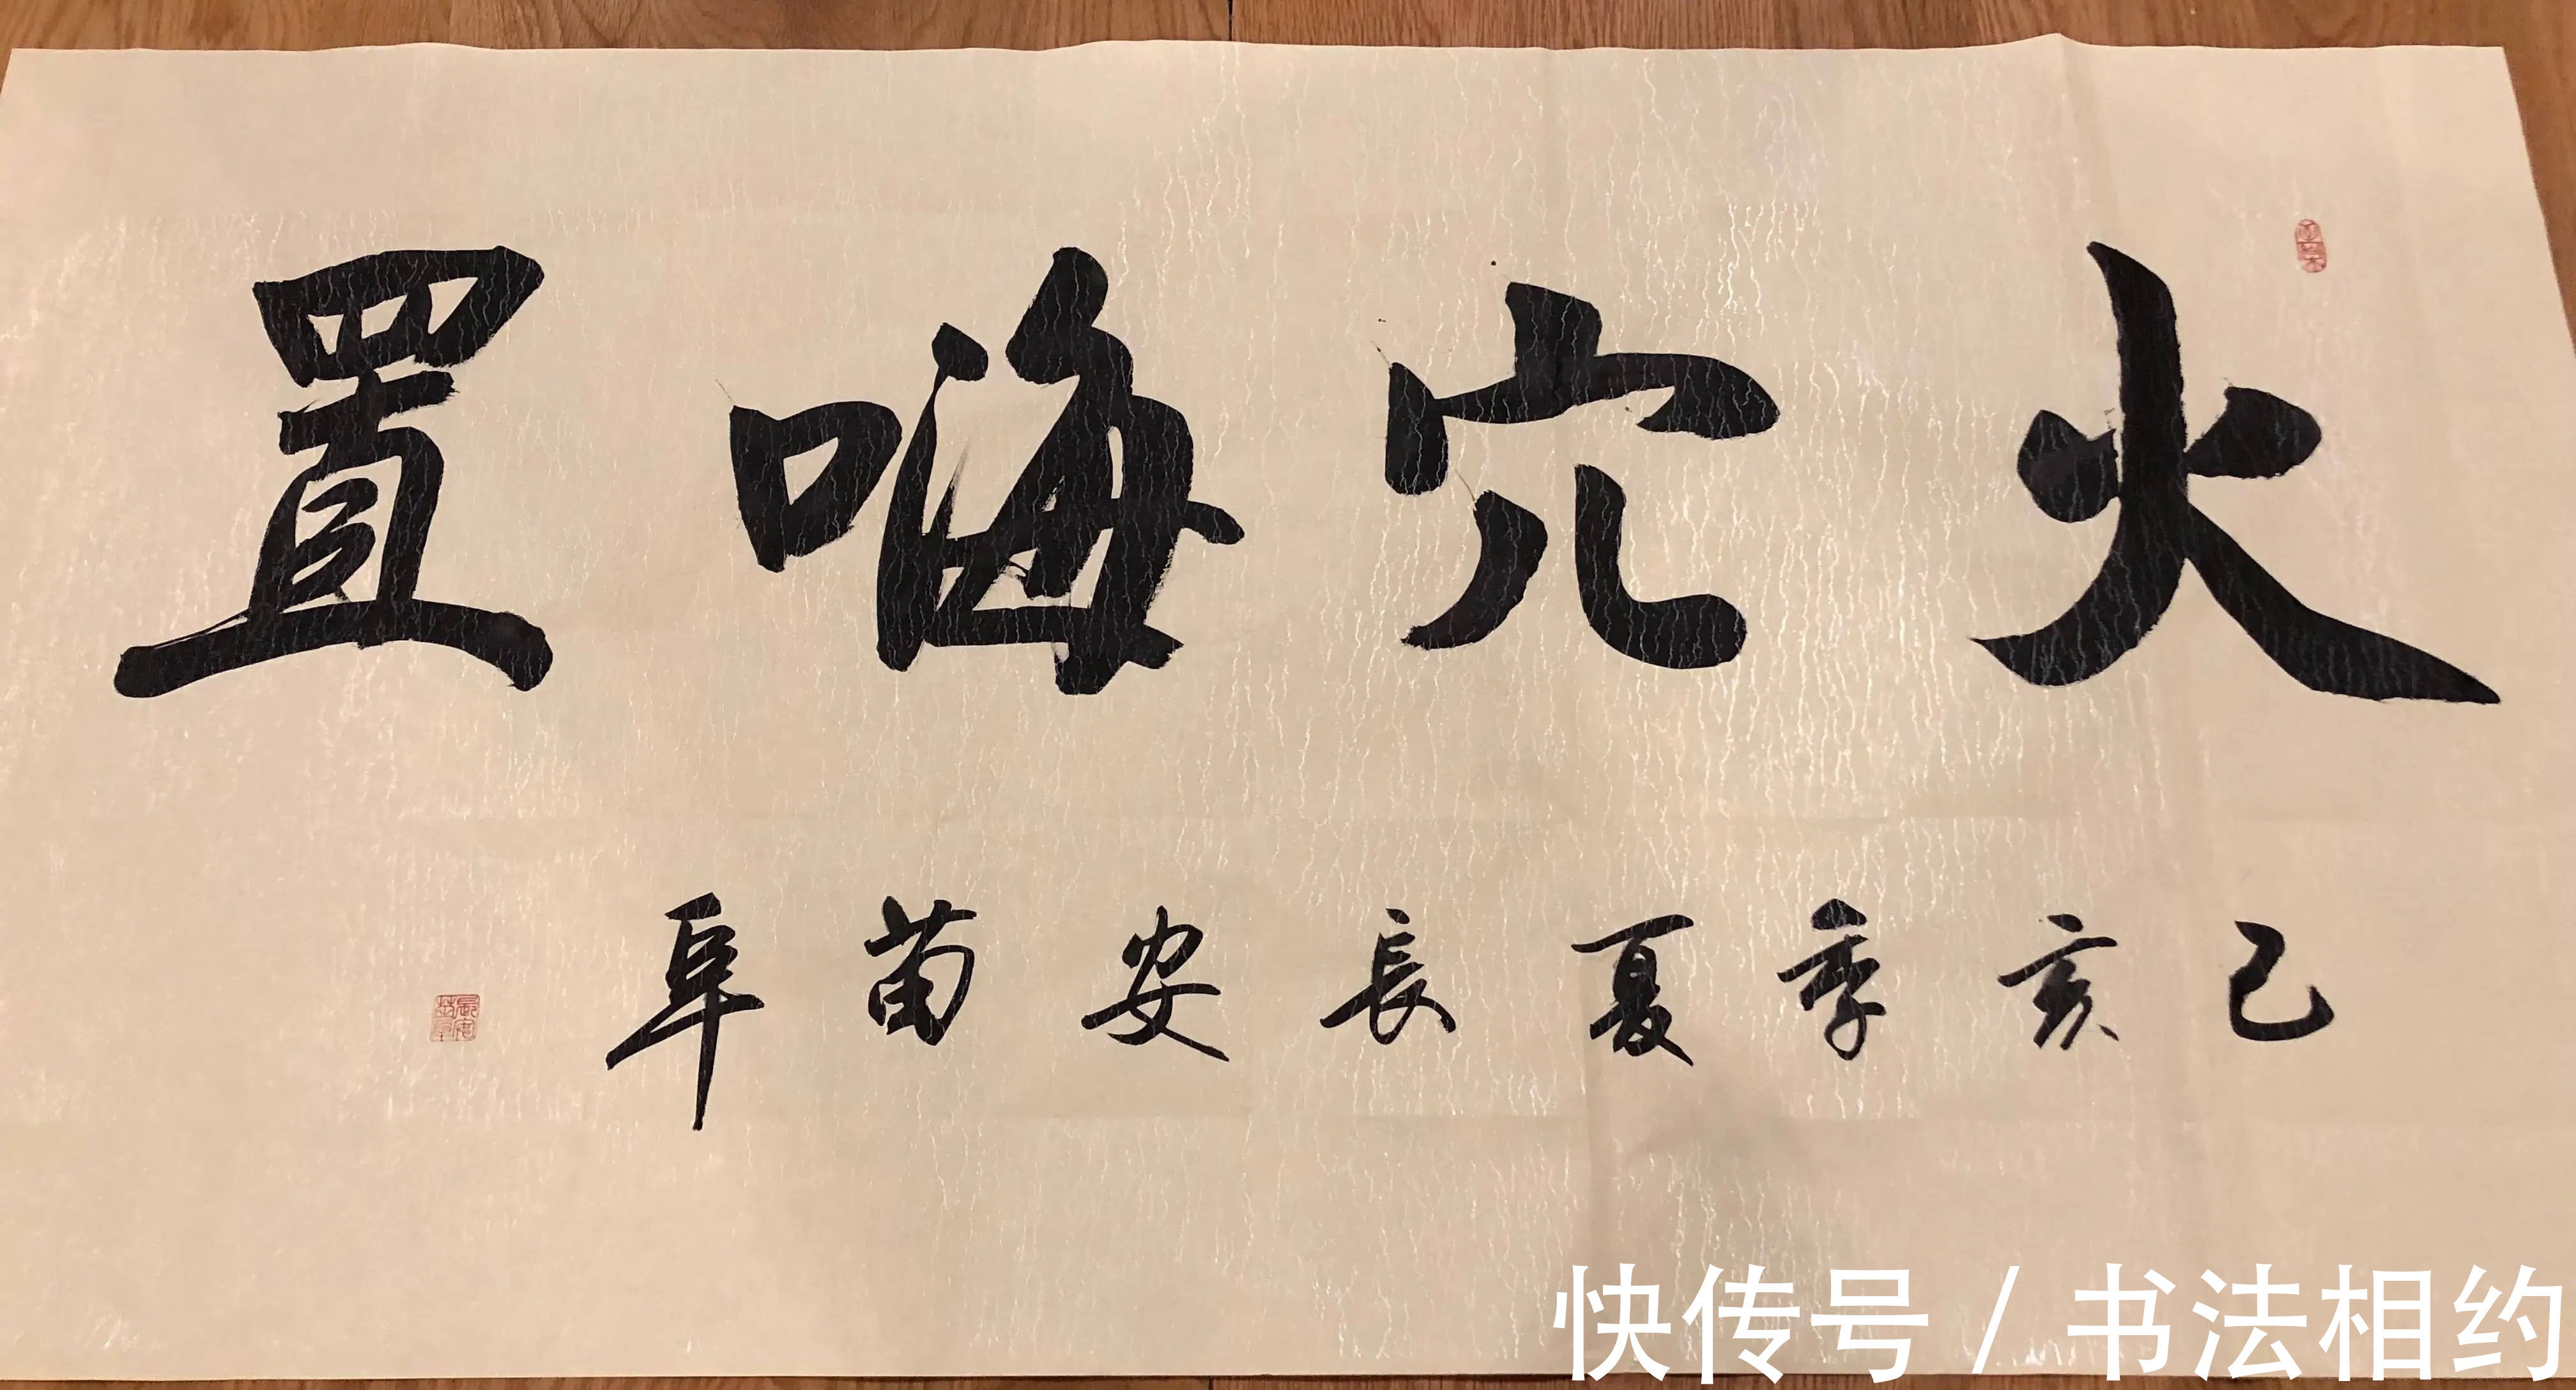 火穴嗨置
己亥季夏長安苗阜
快传号 / 书法相约